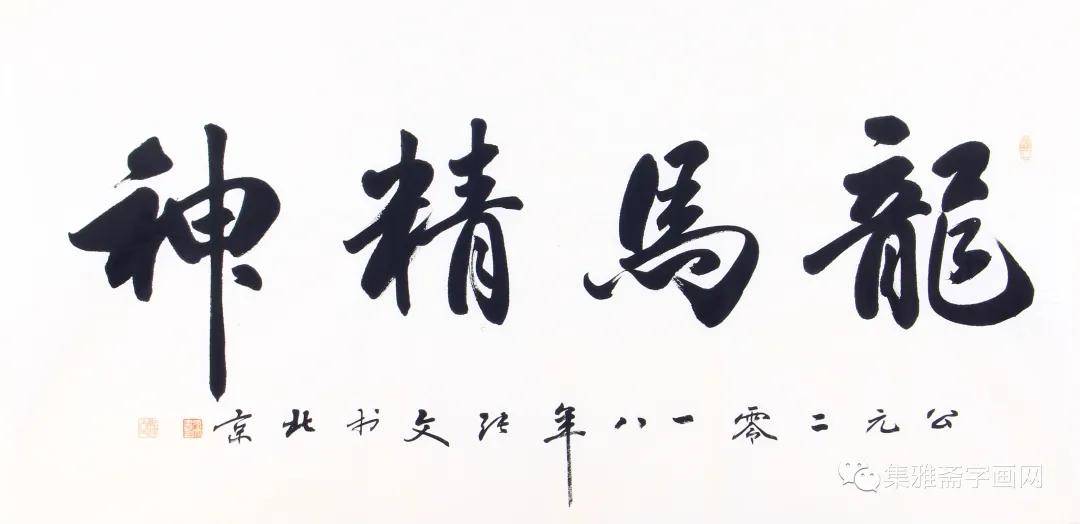 龍馬精神
公元二零一八年張文於北京
集雅斋字画网